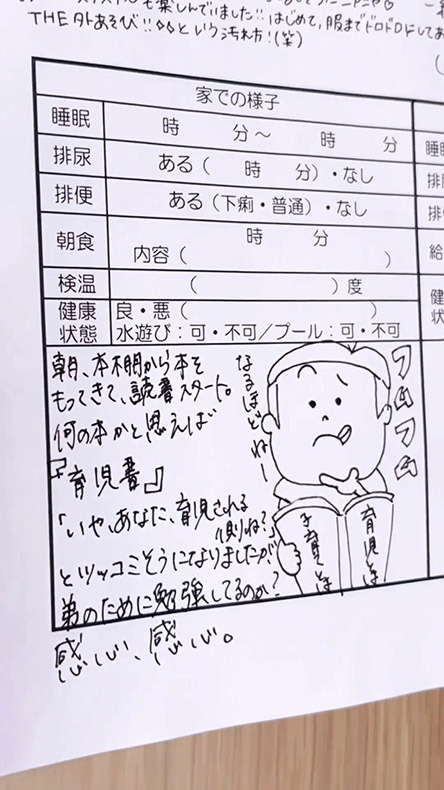 も楽しんでいました!!はじめて、服までドロドロにして
THE外あそび!!という汚れ方!(笑)
家での様子
睡眠 時 分〜 時 分
排尿 ある( 時 分)・なし
排便 ある(下痢・普通)・なし
朝食 時 分
内容( )
検温 ( )度
健康状態 良・悪( )
水遊び:可・不可/プール:可・不可
朝、本棚から本を
もってきて、読書スタート。
何の本かと思えば
『育児書』
「いや、あなた、育児される
側ね?」
とツッコミそうになりましたが
弟のために勉強してるのか?
感心、感心。
なるほどねー
フムフム
子育てとは
育児とは
睡
排
排
給
健
状